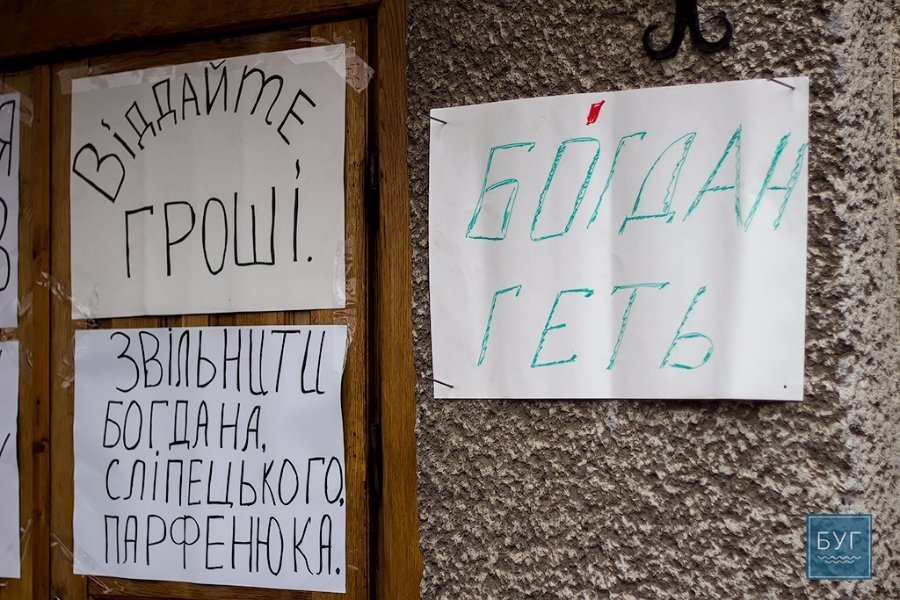 Віддайте
ГРОШІ.
ЗВІЛЬНИТИ
БОГДАНА,
СЛІПЕЦЬКОГО,
ПАРФЕНЮКА.
БОГДАН
ГЕТЬ
БУГ